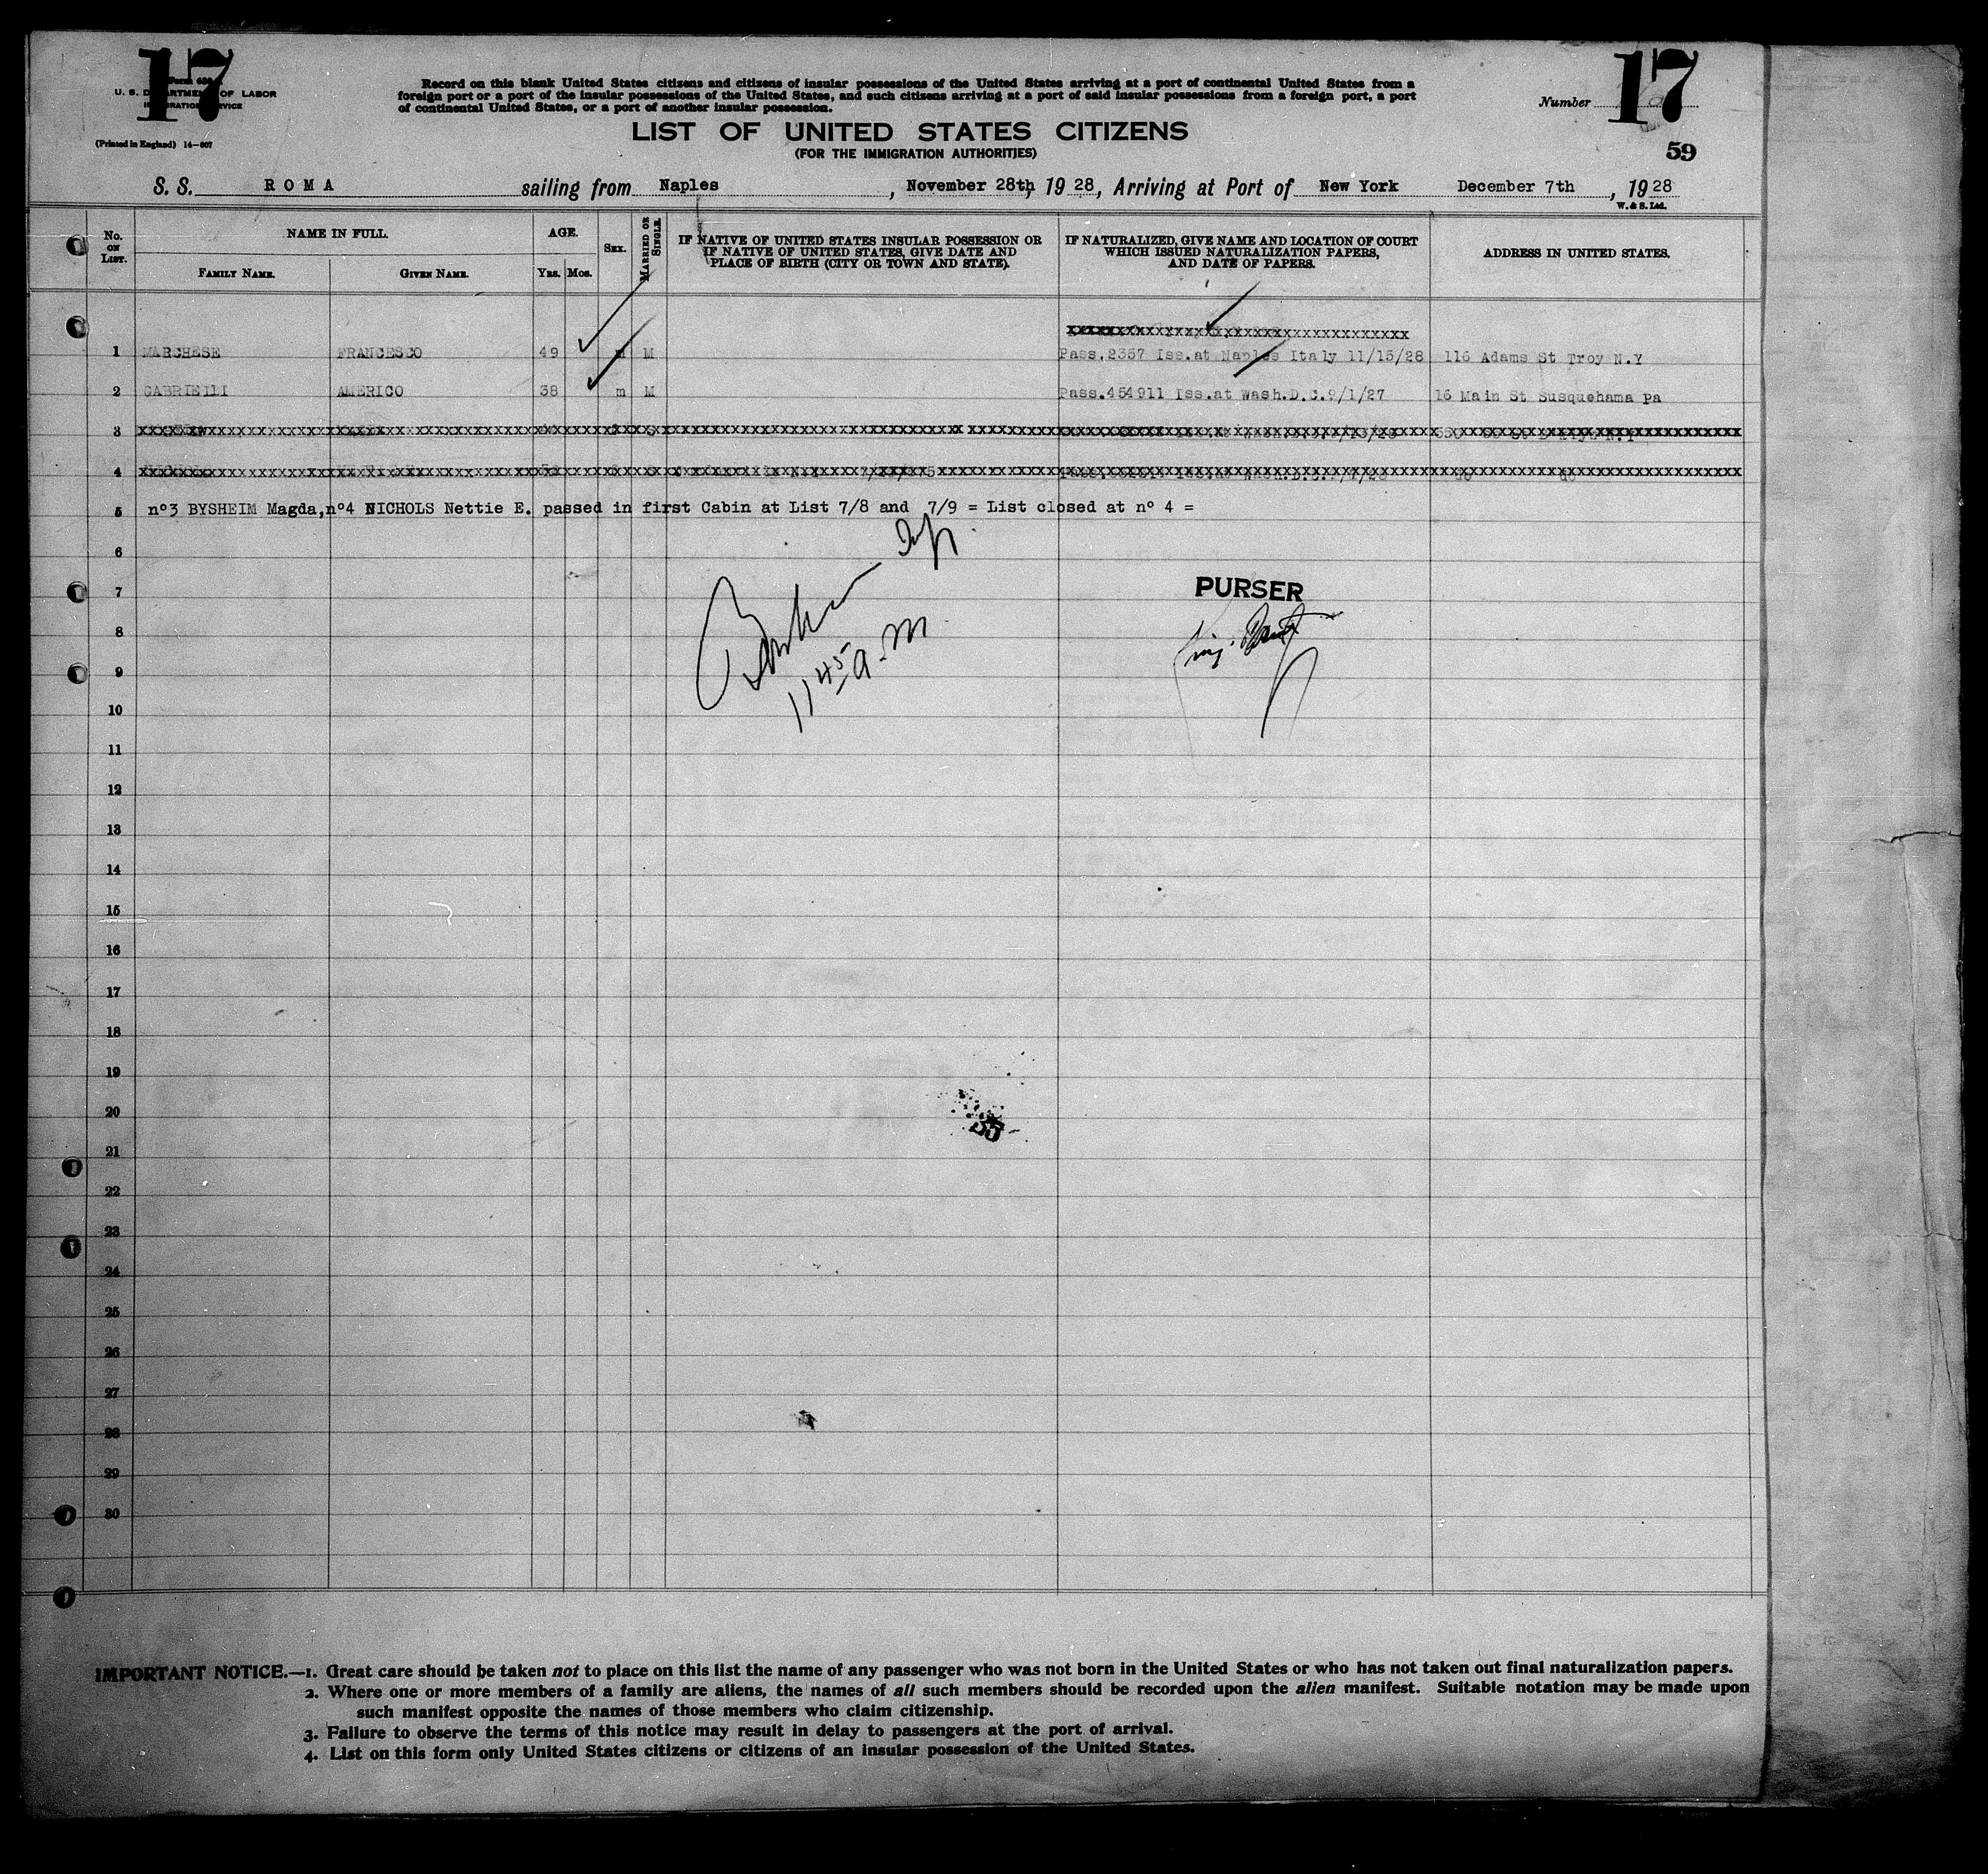 17
Form 630
U. S. DEPARTMENT OF LABOR
IMMIGRATION SERVICE
(Printed in England) 14—607
Record on this blank United States citizens and citizens of insular possessions of the United States arriving at a port of continental United States from a
foreign port or a port of the insular possessions of the United States, and such citizens arriving at a port of said insular possessions from a foreign port, a port
of continental United States, or a port of another insular possession.
LIST OF UNITED STATES CITIZENS
(FOR THE IMMIGRATION AUTHORITIES)
Number 17
59
S. S. ROMA sailing from Naples, November 28th, 1928, Arriving at Port of New York December 7th, 1928
W. & S. Ltd.
No. ON LIST.
NAME IN FULL.
FAMILY NAME. GIVEN NAME.
AGE.
YRS. MOS.
SEX.
MARRIED OR SINGLE.
IF NATIVE OF UNITED STATES INSULAR POSSESSION OR
IF NATIVE OF UNITED STATES, GIVE DATE AND
PLACE OF BIRTH (CITY OR TOWN AND STATE).
IF NATURALIZED, GIVE NAME AND LOCATION OF COURT
WHICH ISSUED NATURALIZATION PAPERS,
AND DATE OF PAPERS.
ADDRESS IN UNITED STATES.
1 MARCHESE FRANCESCO 49 m M Pass.2357 Iss.at Naples Italy 11/15/28 116 Adams St Troy N.Y
2 GABRIELLI AMERICO 38 m M Pass.454911 Iss.at Wash.D.C.9/1/27 16 Main St Susquehama Pa
3
4
5 n°3 BYSHEIM Magda,n°4 NICHOLS Nettie E. passed in first Cabin at List 7/8 and 7/9 = List closed at n° 4 =
6
7 PURSER
8
11 45 a.m
9
10
11
12
13
14
15
16
17
18
19
20
21
22
23
24
25
26
27
28
29
30
IMPORTANT NOTICE.—1. Great care should be taken not to place on this list the name of any passenger who was not born in the United States or who has not taken out final naturalization papers.
2. Where one or more members of a family are aliens, the names of all such members should be recorded upon the alien manifest. Suitable notation may be made upon
such manifest opposite the names of those members who claim citizenship.
3. Failure to observe the terms of this notice may result in delay to passengers at the port of arrival.
4. List on this form only United States citizens or citizens of an insular possession of the United States.